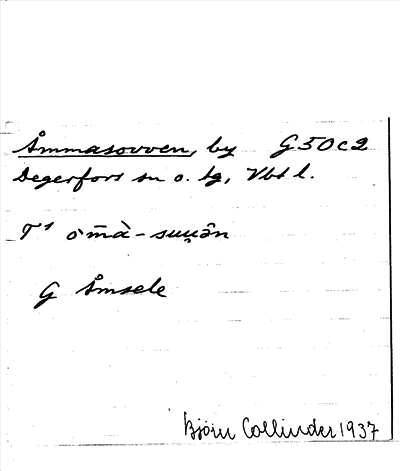 Åmmasovven, by G50c2
Degerfors sn o. tg, Vbd l.
T¹
G Åmsele
Björn Collinder 1937